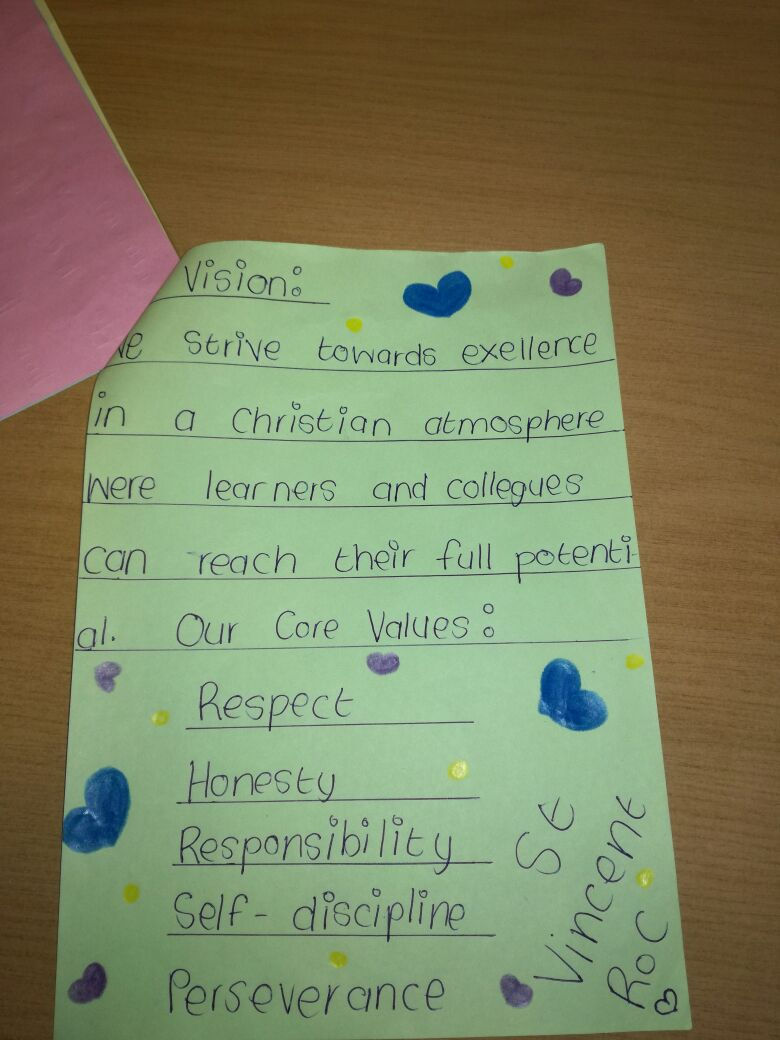 Vision:
We strive towards exellence
in a Christian atmosphere
were learners and collegues
can reach their full potenti-
al. Our Core Values:
Respect
Honesty
Responsibility
Self-discipline
Perseverance
St
Vincent
RoC